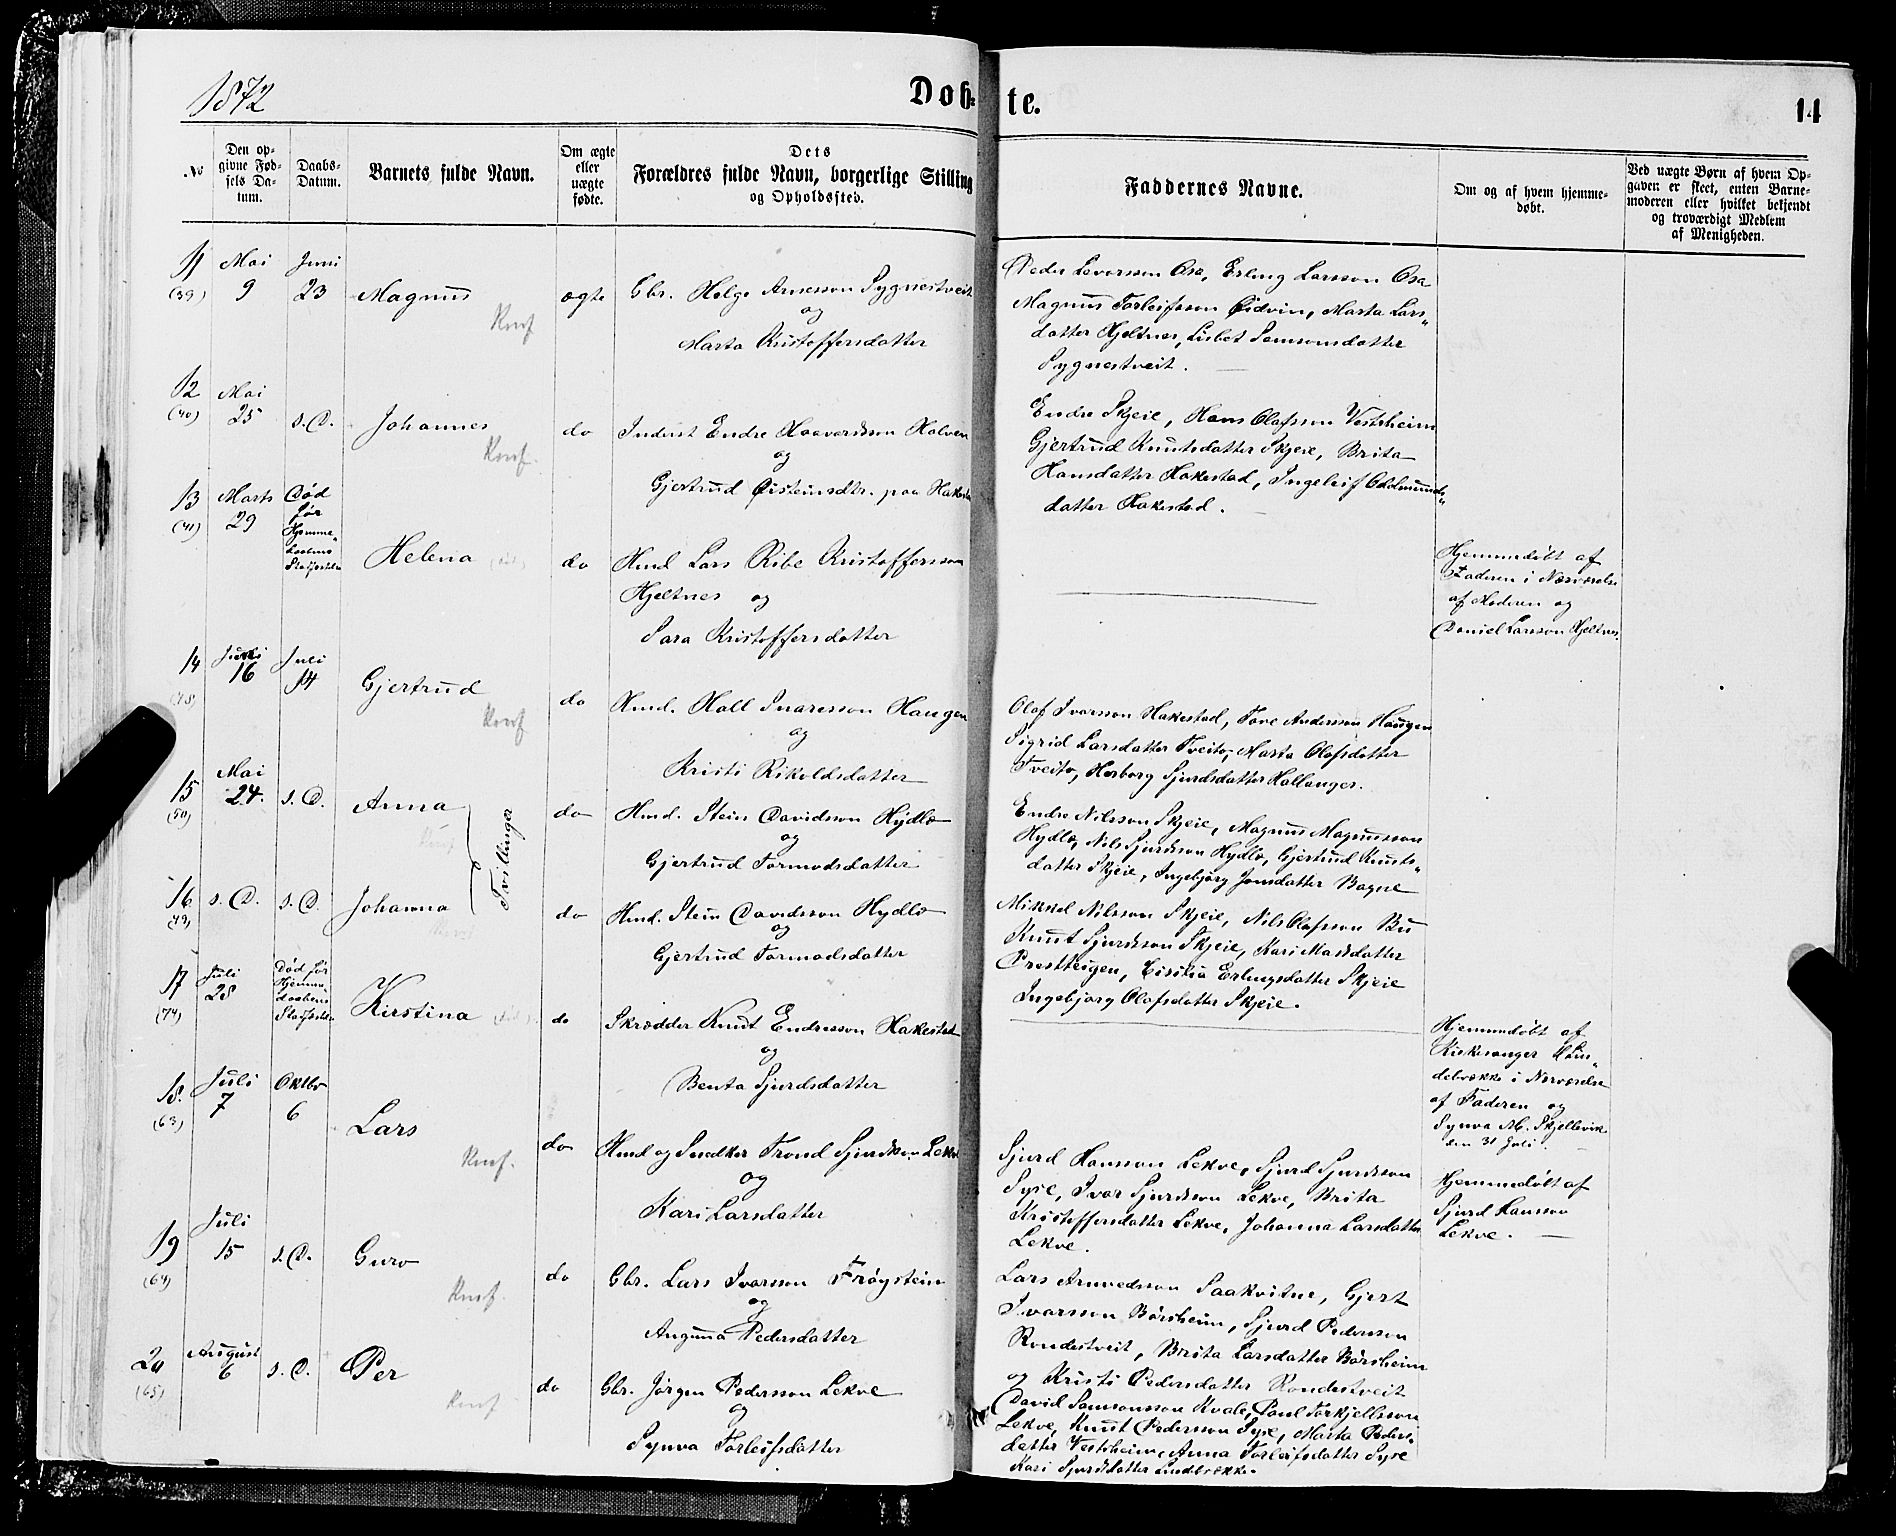 1872
Døb-
te.
14
No
Den op-
givne Fød-
sels Da-
tum.
Daabs-
Datum.
Barnets fulde Navn.
Om ægte
eller
uægte
fødte.
Dets
Forældres fulde Navn, borgerlige Stilling
og Opholdssted.
Faddernes Navne.
Om og af hvem hjemme-
døbt.
Ved uægte Børn af hvem Op-
gaven er skeet, enten Barne-
moderen eller hvilket bekjendt
og troværdigt Medlem
af Menigheden.
11
(39)
Mai
9
Juni
23
Magnus
Konf
ægte
Gbr. Helge Arnesson Sygnestveit
og
Marta Kristoffersdatter
Peder Levorsson Osa, Erling Larsson Osa
Magnus Torleifsson Eidvin, Marta Lars„
datter Hjeltnes, Lisbet Samsonsdatter
Sygnestveit.
12
(40)
Mai
25
s.D.
Johannes
Konf.
do
Inderst Endre Haaversson Halven
og
Gjertrud Øisteinsdtr. paa Hakestad
Endre Skjeie, Hans Olafsson Vestrheim
Gjertrud Knutsdatter Skjeie, Brita
Hansdatter Hakestad, Ingeleif Oddmunds„
datter Hakestad.
13
(41)
Marts
29
Død
før
Hjemme„
daabens
Stadfestelse
Helena (død)
do
Hmd Lars Ribe Kristoffersson
Hjeltnes og
Sara Kristoffersdatter
Hjemmedøbt af
Faderen i Nærværelse
af Moderen og
Daniel Larsson Hjeltnes.
14
Juni
16
Juli
14
Gjertrud
Konf
do
Hmd. Hall Ivarsson Haugen
og
Kristi Rikoldsdatter
Olaf Ivarsson Hakestad, Tore Andersson Haugen
Sigrid Larsdatter Tveito, Marta Olafsdatter
Tveito, Herborg Sjurdsdatter Hallanger.
15
(50)
Mai
24.
s.D.
Anna
Konf
Tvillinger
do
Hmd. Stein Davidsson Hydle
og
Gjertrud Tormodsdatter
Endre Nilsson Skjeie, Magnus Magnusson
Hydle, Nils Sjurdsson Hydle, Gjertrud Knuts„
datter Skjeie, Ingebjørg Jonsdatter Bagne
16
(49)
s.D.
s.D.
Johanna
do
Hmd. Stein Davidsson Hydle
og
Gjertrud Tormodsdatter
Mikkel Nilsson Skjeie, Nils Olafsson Bu
Knut Sjurdsson Skjeie, Kari Masdatter
Prestteigen, Eisilia Erlingsdatter Skjeie
Ingebjørg Olafsdatter Skjeie.
17
(74)
Juli
28
Død før
Hjemme
daabens
Stadfestelse
Kirstina (død).
do
Skrædder Knut Endresson Hakestad
og
Benta Sjurdsdatter
Hjemmedøbt af
Kirkesanger Lin„
debrække i Nærværelse
af Faderen og
Synva M. Skjellevik
den 31 Juli.
18.
(63)
Juli
7
Oktbr
6
Lars
Konf.
do
Hmd og Snedker Trond Sjurdsson Lekve
og
Kari Larsdatter
Sjurd Hansson Lekve, Sjurd Sjurdsson
Syse, Ivar Sjurdsson Lekve, Brita
Kristoffersdatter Lekve, Johanna Larsdatter
Lekve.
Hjemmedøbt af
Sjurd Hansson
Lekve.
19
(64)
Juli
15
s.D.
Guro
Konf.
do
Gbr. Lars Ivarsson Trøystein
og
Angunna Pedersdatter
Lars Arnvedsson Saakvitne, Gjert
Ivarsson Børsheim, Sjurd Pedersson
Rondestveit, Brita Larsdatter Børsheim
og Kristi Pedersdatter Rondestveit
20
(65)
August
6
s.D.
Per
Konf
do
Gbr. Jørgen Pedersson Lekve
og
Synva Torleifsdatter
David Samsonsson Kvale, Paul Torkjellsson
Lekve, Knut Pedersson Syse, Marta Peders„
datter Vestrheim, Anna Torleifsdatter Syse
Kari Sjurdsdatter Lindebrække.